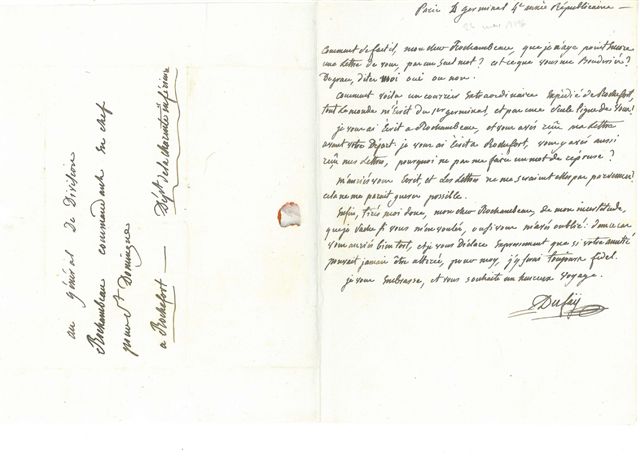 Paris germinal 4e année Républicaine —
Comment se fait-il, mon cher Rochambeau, que je n'aye point Encore
une Lettre de vous, pas un seul mot ? est-ce que vous me Boudriez ?
De grace, dites moi oui ou non.
Comment voila un courrier Extraordinaire Expédié de Rochefort,
tout Le monde m'Ecrit du germinal, et pas une seule ligne de vous !
je vous ai Ecrit a Rochambeau, et vous avés reçu ma Lettre
avant votre Départ. je vous ai Ecrit a Rochefort, vous y avés aussi
reçu mes Lettres, pourquoi ne pas me faire un mot de réponse ?
m'auriés vous Ecrit, et Les Lettres ne me seraient elles pas parvenues ?
cela ne me parait gueres possible.
Enfin, tirés moi donc, mon cher Rochambeau, de mon incertitude,
que je sache si vous m'en voulés, ou si vous m'avés oublié : dans ce cas
vous auriés bien tort, et je vous Déclare Expressement que si votre amitié
pouvait jamais être altérée, pour moy, j'y serai toujours fidel.
je vous Embrasse, et vous souhaite un heureux voyage.
Dufay
au général de Division
Rochambeau commandant En chef
pour St Domingue
a Rochefort — Dépt de la Charente inférieure